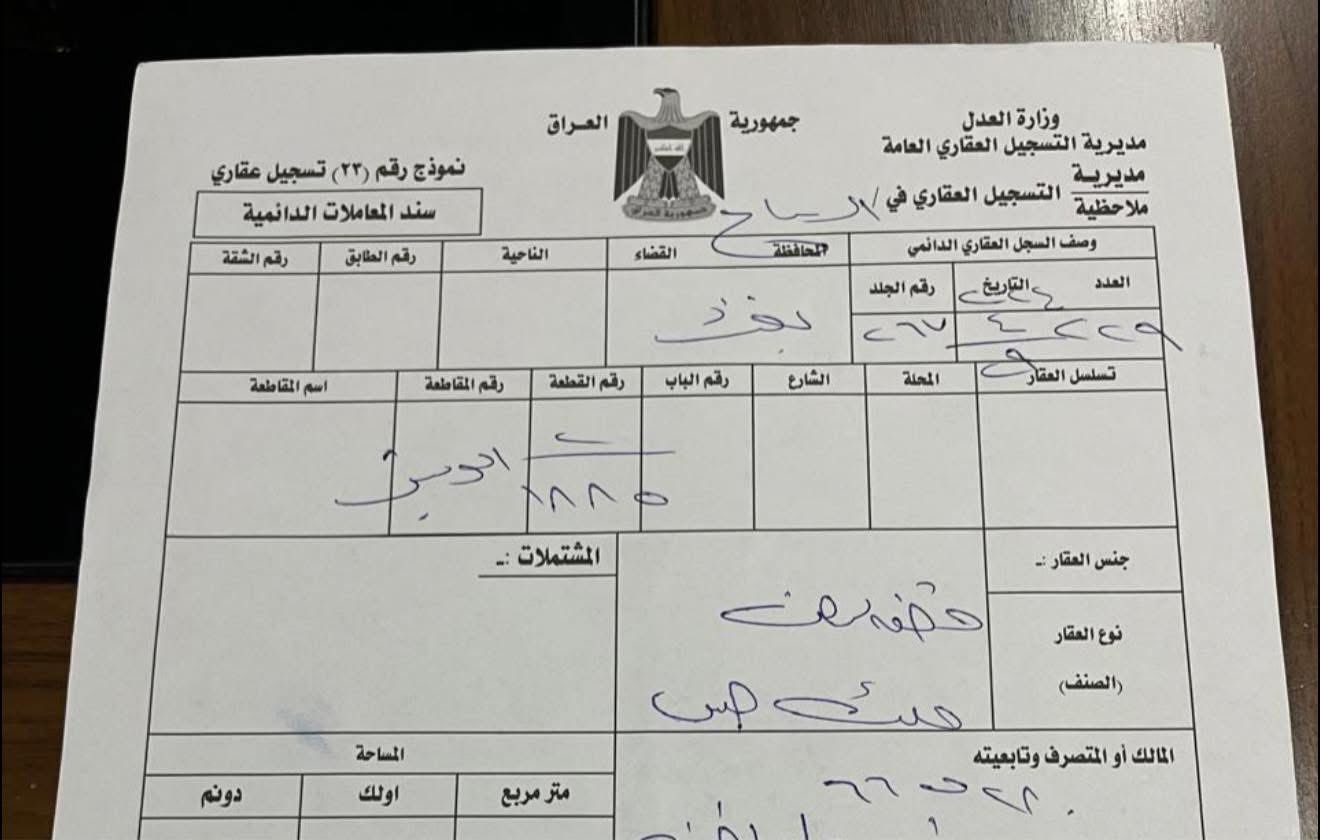 وزارة العدل
مديرية التسجيل العقاري العامة
مديرية
ملاحظية
التسجيل العقاري في /
جمهورية العراق
نموذج رقم (٢٣) تسجيل عقاري
سند المعاملات الدائمية
وصف السجل العقاري الدائمي المحافظة القضاء الناحية رقم الطابق رقم الشقة
العدد التاريخ رقم الجلد
بغداد
٢٦٧
تسلسل العقار المحلة الشارع رقم الباب رقم القطعة رقم المقاطعة اسم المقاطعة
١٨٨٥
جنس العقار :ـ
المشتملات :ـ
نوع العقار
(الصنف)
ملك صرف
المالك أو المتصرف وتابعيته
المساحة
متر مربع اولك دونم